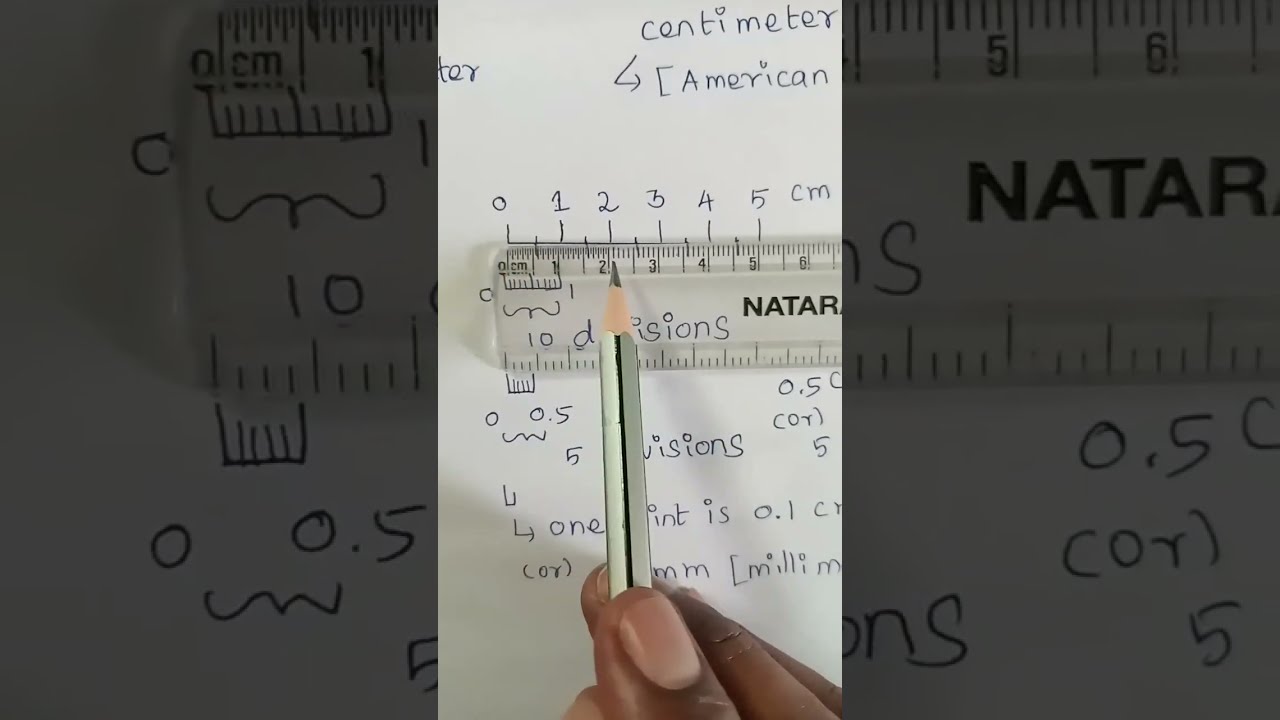 centimeter
ter
↳ [American
0 1 2 3 4 5 cm
0 cm 1 2 3 4 5 6
0 1
NATAR
10 divisions
0.5 C
0 0.5
(or)
5 visions 5
↳ one int is 0.1 cm
(or) mm [millim